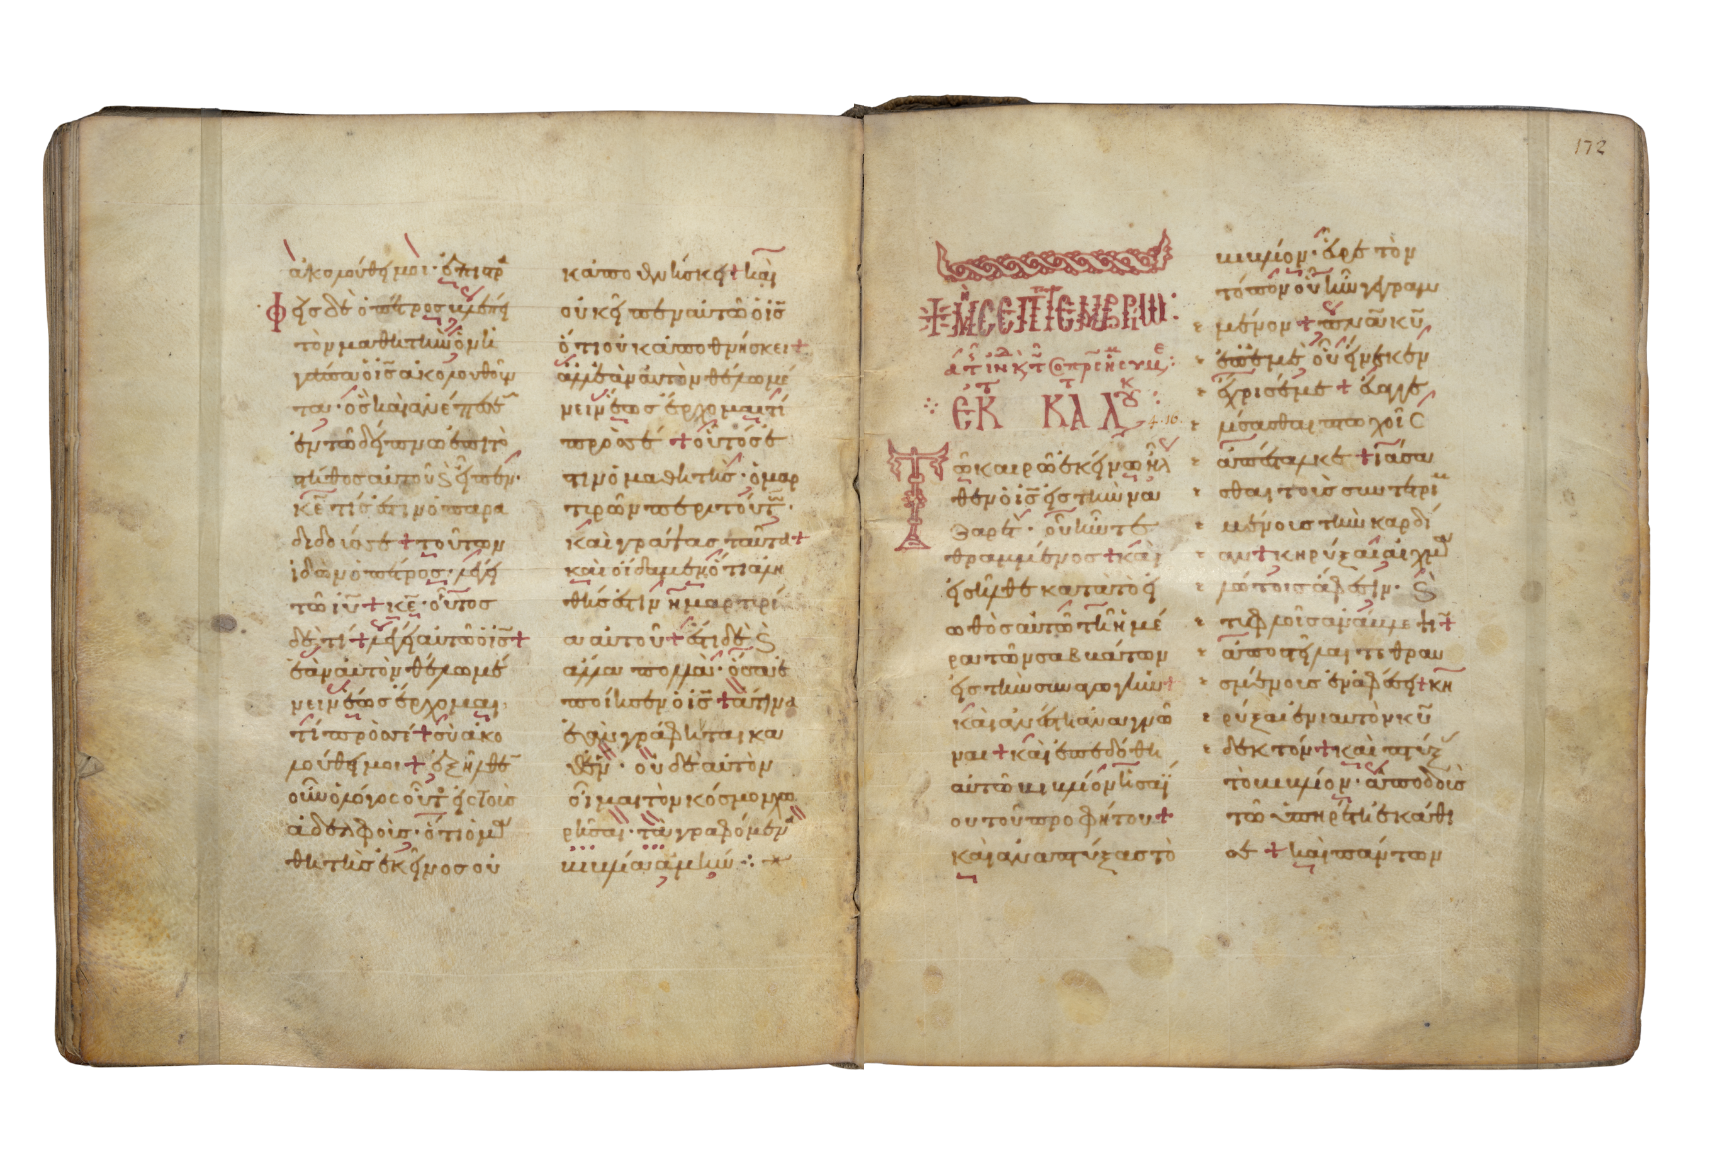 ἀκολούθη μοι· ἐπιστρα
φεὶς δὲ ὁ πέτρος βλέπει
τὸν μαθητὴν ὃν ἠ
γάπα ὁ ι̅ς̅ ἀκολουθοῦν
τα· ὃς καὶ ἀνέπεσε
ἐν τῶ δείπνω ἐπὶ τὸ
στῆθος αὐτοῦ ϗ εἶπεν·
κ̅ε̅ τίς ἐστιν ὁ παρα
διδούς σε + τοῦτον
ἰδὼν ὁ πέτρος· λέγει
τῶ ι̅υ̅ + κ̅ε̅· οὗτος
δὲ τί + λέγει αὐτῶ ὁ ι̅ς̅ +
ἐὰν αὐτὸν θέλω μέ
νειν ἕως ἔρχομαι·
τί πρὸς σέ + σὺ ἀκο
λούθη μοι + ἐξῆλθε
οὖν ὁ λόγος οὗτ εἰς τοὺς
ἀδελφοὺς· ὅτι ὁ μα
θητὴς ἐκεῖνος οὐ
κ ἀποθνήσκει + καὶ
οὐκ εἶπεν αὐτῶ ὁ ι̅ς̅
ὅτι οὐκ ἀποθνήσκει +
ἀλλ' ἐὰν αὐτὸν θέλω μέ
νειν ἕως ἔρχομαι τί
πρὸς σέ + οὗτός ἐσ
τιν ὁ μαθητὴς· ὁ μαρ
τυρῶν περὶ τούτων·
καὶ γράψας ταῦτα +
καὶ οἴδαμεν ὅτι ἀλη
θής ἐστιν ἡ μαρτυρί
α αὐτοῦ + ἔστι δὲ ϗ
ἄλλα πολλὰ· ὅσα ἐ
ποίησεν ὁ ι̅ς̅ + ἅτινα
ἐὰν γράφηται κα
θ' ἕν· οὐδὲ αὐτὸν
οἶμαι τὸν κόσμον χω
ρῆσαι· τὰ γραφόμενα
βιβλία ἀμήν ·:·
172
+ ΜΗ ΣΕΠΤΕΜΒΡΙΩ:
ΕΚ Τ ΚΑΤ ΛΟΥΚ
4.16
Τῶ καιρῶ ἐκείνω ἦλ
θεν ὁ ι̅ς̅ εἰς τὴν να
ζαρέτ· οὗ ἦν τε
θραμμένος + καὶ
εἰσῆλθε κατὰ τὸ εἰ
ωθὸς αὐτῶ τῆ ἡμέ
ρα τῶν σαββάτων
εἰς τὴν συναγωγὴν +
καὶ ἀνέστη ἀναγνῶ
ναι + καὶ ἐπεδόθη
αὐτῶ βιβλίον ἡσαΐ
ου τοῦ προφήτου +
καὶ ἀναπτύξας τὸ
βιβλίον· εὗρε τὸν
τόπον οὗ ἦν γεγραμ
μένον + π̅ν̅α̅ κ̅υ̅
ἐπ' ἐμὲ οὗ εἵνεκεν
ἔχρισέ με + εὐαγγε
λίσασθαι πτωχοῖς
ἀπέσταλκε + ἰάσα
σθαι τοὺς συντετριμ
μένους τὴν καρδί
αν + κηρύξαι αἰχμα
λώτοις ἄφεσιν· ϗ
τυφλοῖς ἀνάβλεψιν +
ἀποστεῖλαι τεθραυ
σμένους ἐν ἀφέσει + κη
ρύξαι ἐνιαυτὸν κ̅υ̅
δεκτόν + καὶ πτύξας
τὸ βιβλίον· ἀποδοὺς
τῶ ὑπηρέτη ἐκάθι
σε + καὶ πάντων